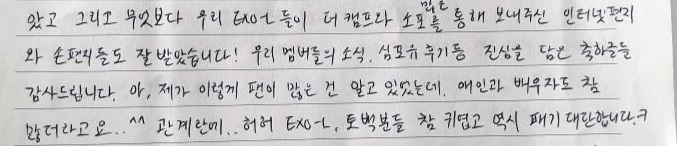 많은
았고 그리고 무엇보다 우리 EXO-L들이 더캠프라 소포를 통해 보내주신 인터넷편지
와 손편지들도 잘 받았습니다! 우리 멤버들의 소식, 심포유 후기등 진심을 담은 축하글들
감사드립니다. 아, 제가 이렇게 팬이 많은 건 알고 있었는데, 애인과 배우자도 참
많더라고요..^^ 관계란에.. 허허 EXO-L, 토벅분들 참 귀엽고 역시 패기 대단합니다.ㅋ